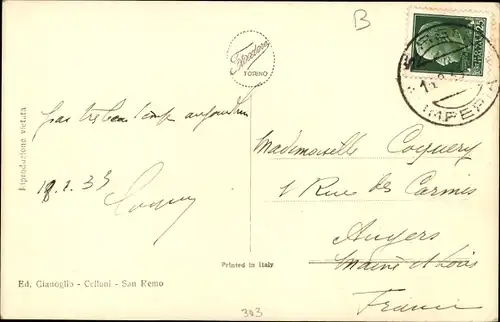 B
Fotocelere
TORINO
IMPERIA
Pas très beau temps aujourd'hui
18.2.35
Coquery
Mademoiselle Coquery
1 Rue des Carmes
Angers
Maine et Loire
France
Riproduzione vietata
Printed in Italy
Ed. Gianoglio - Celloni - San Remo
343